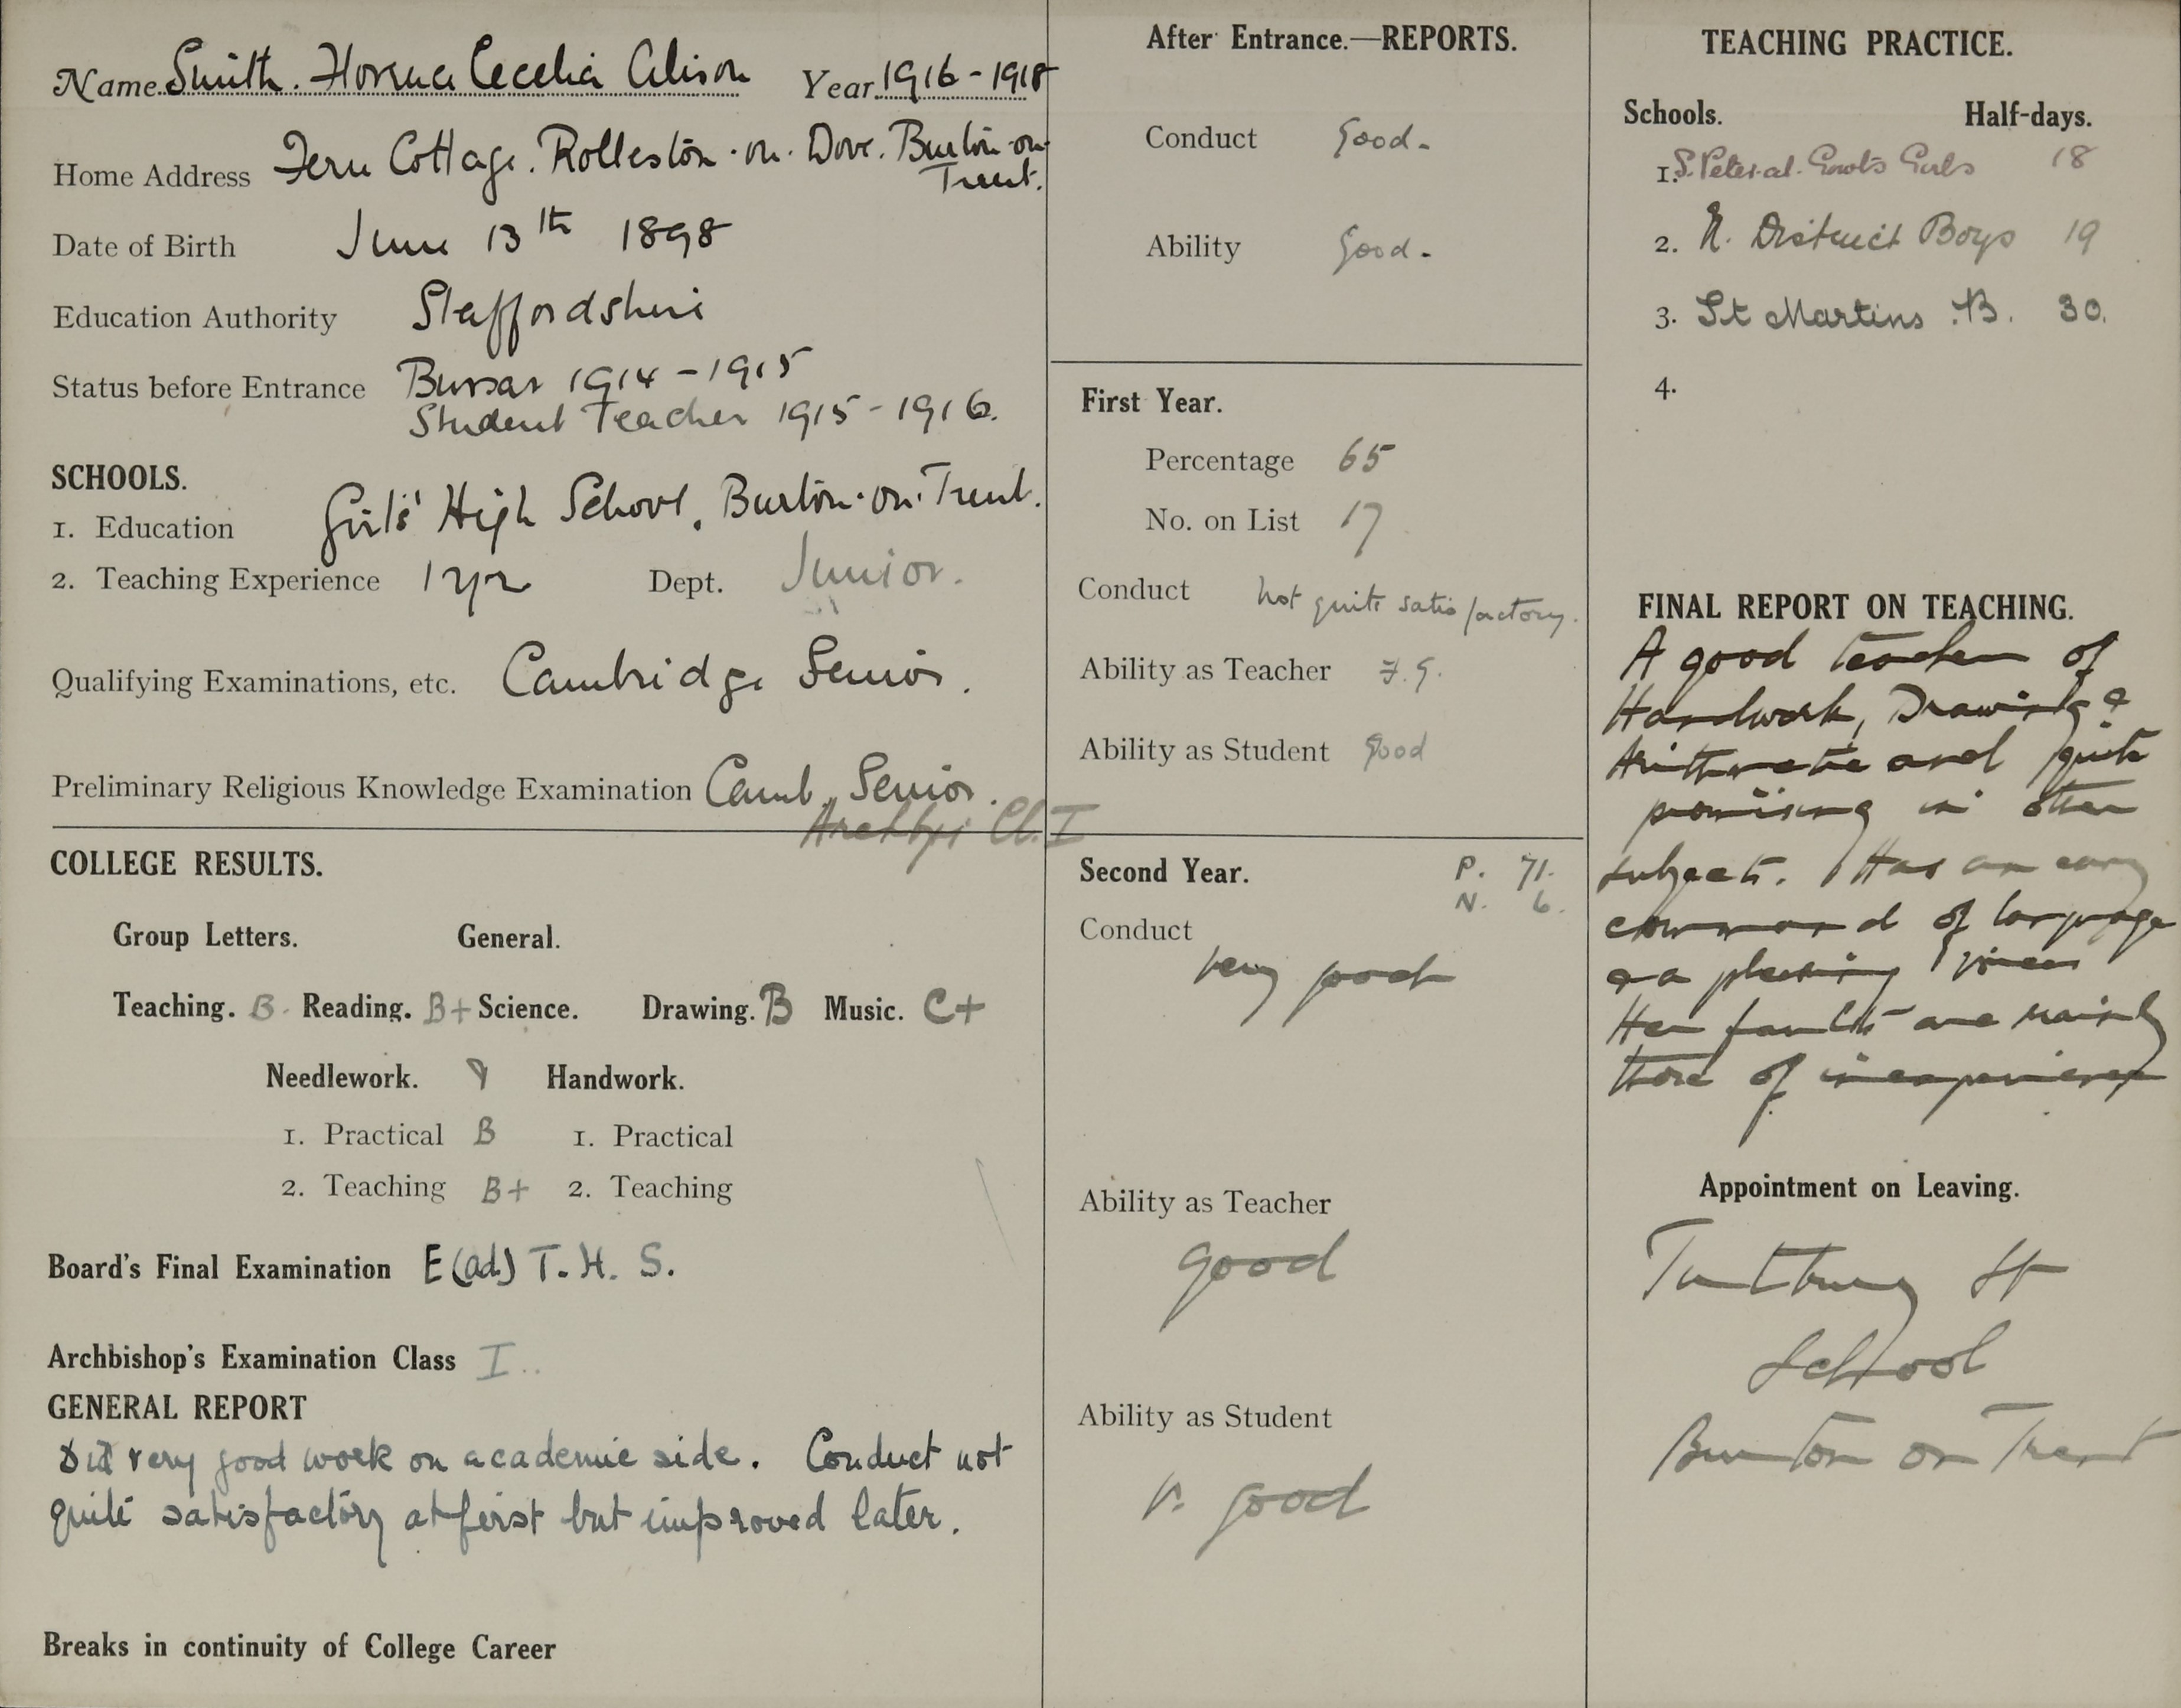 Name Smith. Florence Cecelia Alison Year 1916-1918
Home Address Fern Cottage. Rolleston-on-Dove. Burton-on-
Trent.
Date of Birth June 13th 1898
Education Authority Staffordshire
Status before Entrance Bursar 1914-1915
Student Teacher 1915-1916.
SCHOOLS.
1. Education Girls' High School, Burton-on-Trent.
2. Teaching Experience 1 yr Dept. Junior.
Qualifying Examinations, etc. Cambridge Senior.
Preliminary Religious Knowledge Examination Camb. Senior.
Archbps Cl. I
COLLEGE RESULTS.
Group Letters. General.
Teaching. B. Reading. B+ Science. Drawing. B Music. C+
Needlework. Handwork.
1. Practical B 1. Practical
2. Teaching B+ 2. Teaching
Board's Final Examination E (ad) T. H. S.
Archbishop's Examination Class I..
GENERAL REPORT
Did very good work on academic side. Conduct not
quite satisfactory at first but improved later.
Breaks in continuity of College Career
After Entrance.—REPORTS.
Conduct Good.
Ability Good.
First Year.
Percentage 65
No. on List 17
Conduct not quite satisfactory.
Ability as Teacher F.G.
Ability as Student Good
Second Year. P. 71.
N. 6.
Conduct
very good
Ability as Teacher
good
Ability as Student
v. good
TEACHING PRACTICE.
Schools. Half-days.
1. S. Peter-at-Gowts Girls 18
2. N. District Boys 19
3. St Martins B. 30.
4.
FINAL REPORT ON TEACHING.
A good teacher of
Handwork, Drawing &
Arithmetic and quite
promising in other
subjects. Has an easy
command of language
& a pleasing voice
Her faults are mainly
those of inexperience
Appointment on Leaving.
Tutbury
School
Burton on Trent